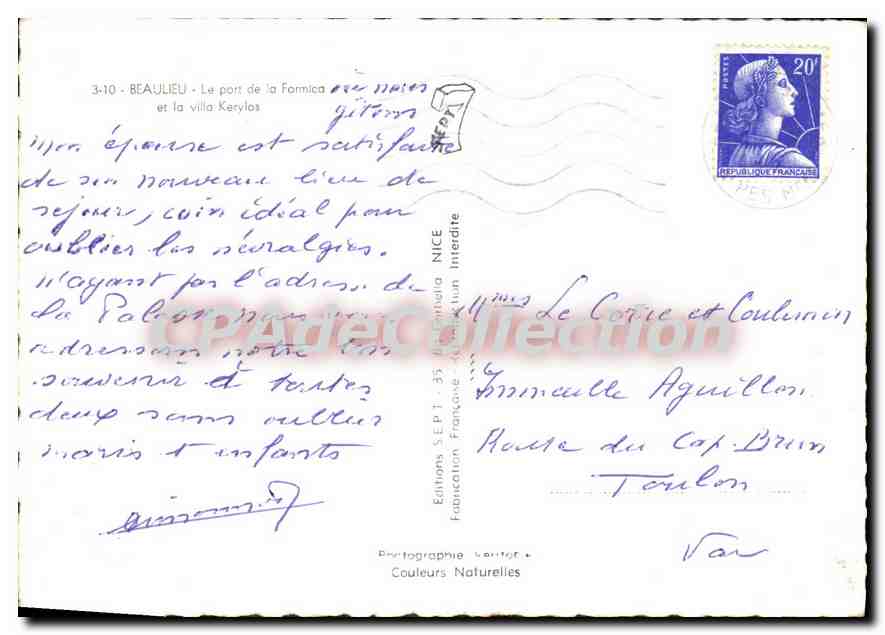 3-10 - BEAULIEU - Le port de la Formica
et la villa Kerylos
où nous
gîtons
Mon épouse est satisfaite
de son nouveau lieu de
séjour, coin idéal pour
oublier les névralgies.
N'ayant pas l'adresse de
La Palasse nous vous
adressons notre bon
souvenir à toutes
deux sans oublier
maris et enfants
SEPT
Editions S.E.P.T. - 35, NICE
Fabrication Française - Reproduction Interdite
POSTES
20F
REPUBLIQUE FRANÇAISE
Mmes Le Corre et Coulomin
Immeuble Aguillon
Route du Cap-Brun
Toulon
Var
Photographie
Couleurs Naturelles
CPAdeCollection